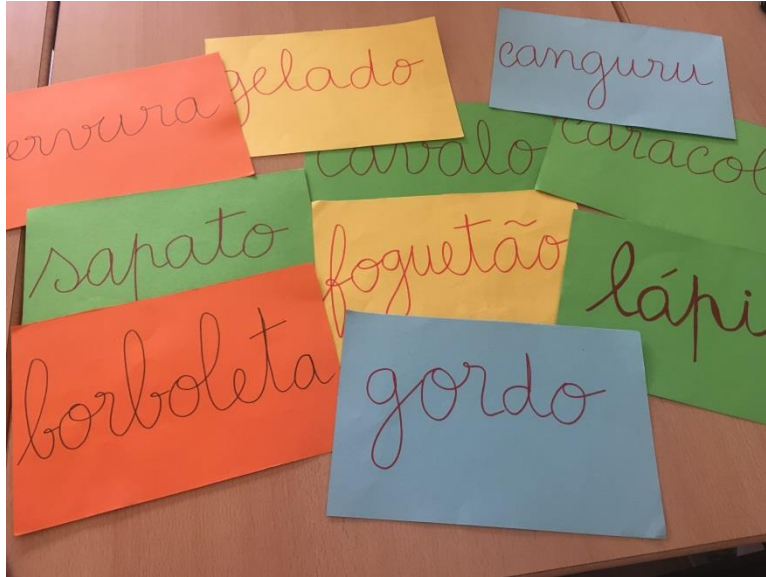 gelado
canguru
ervura
cavalo
caracol
sapato
foguetão
lápi
borboleta
gordo